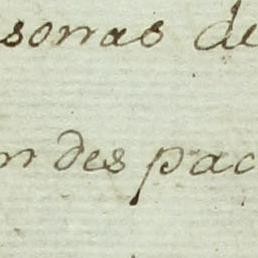 sonas de
n des pac